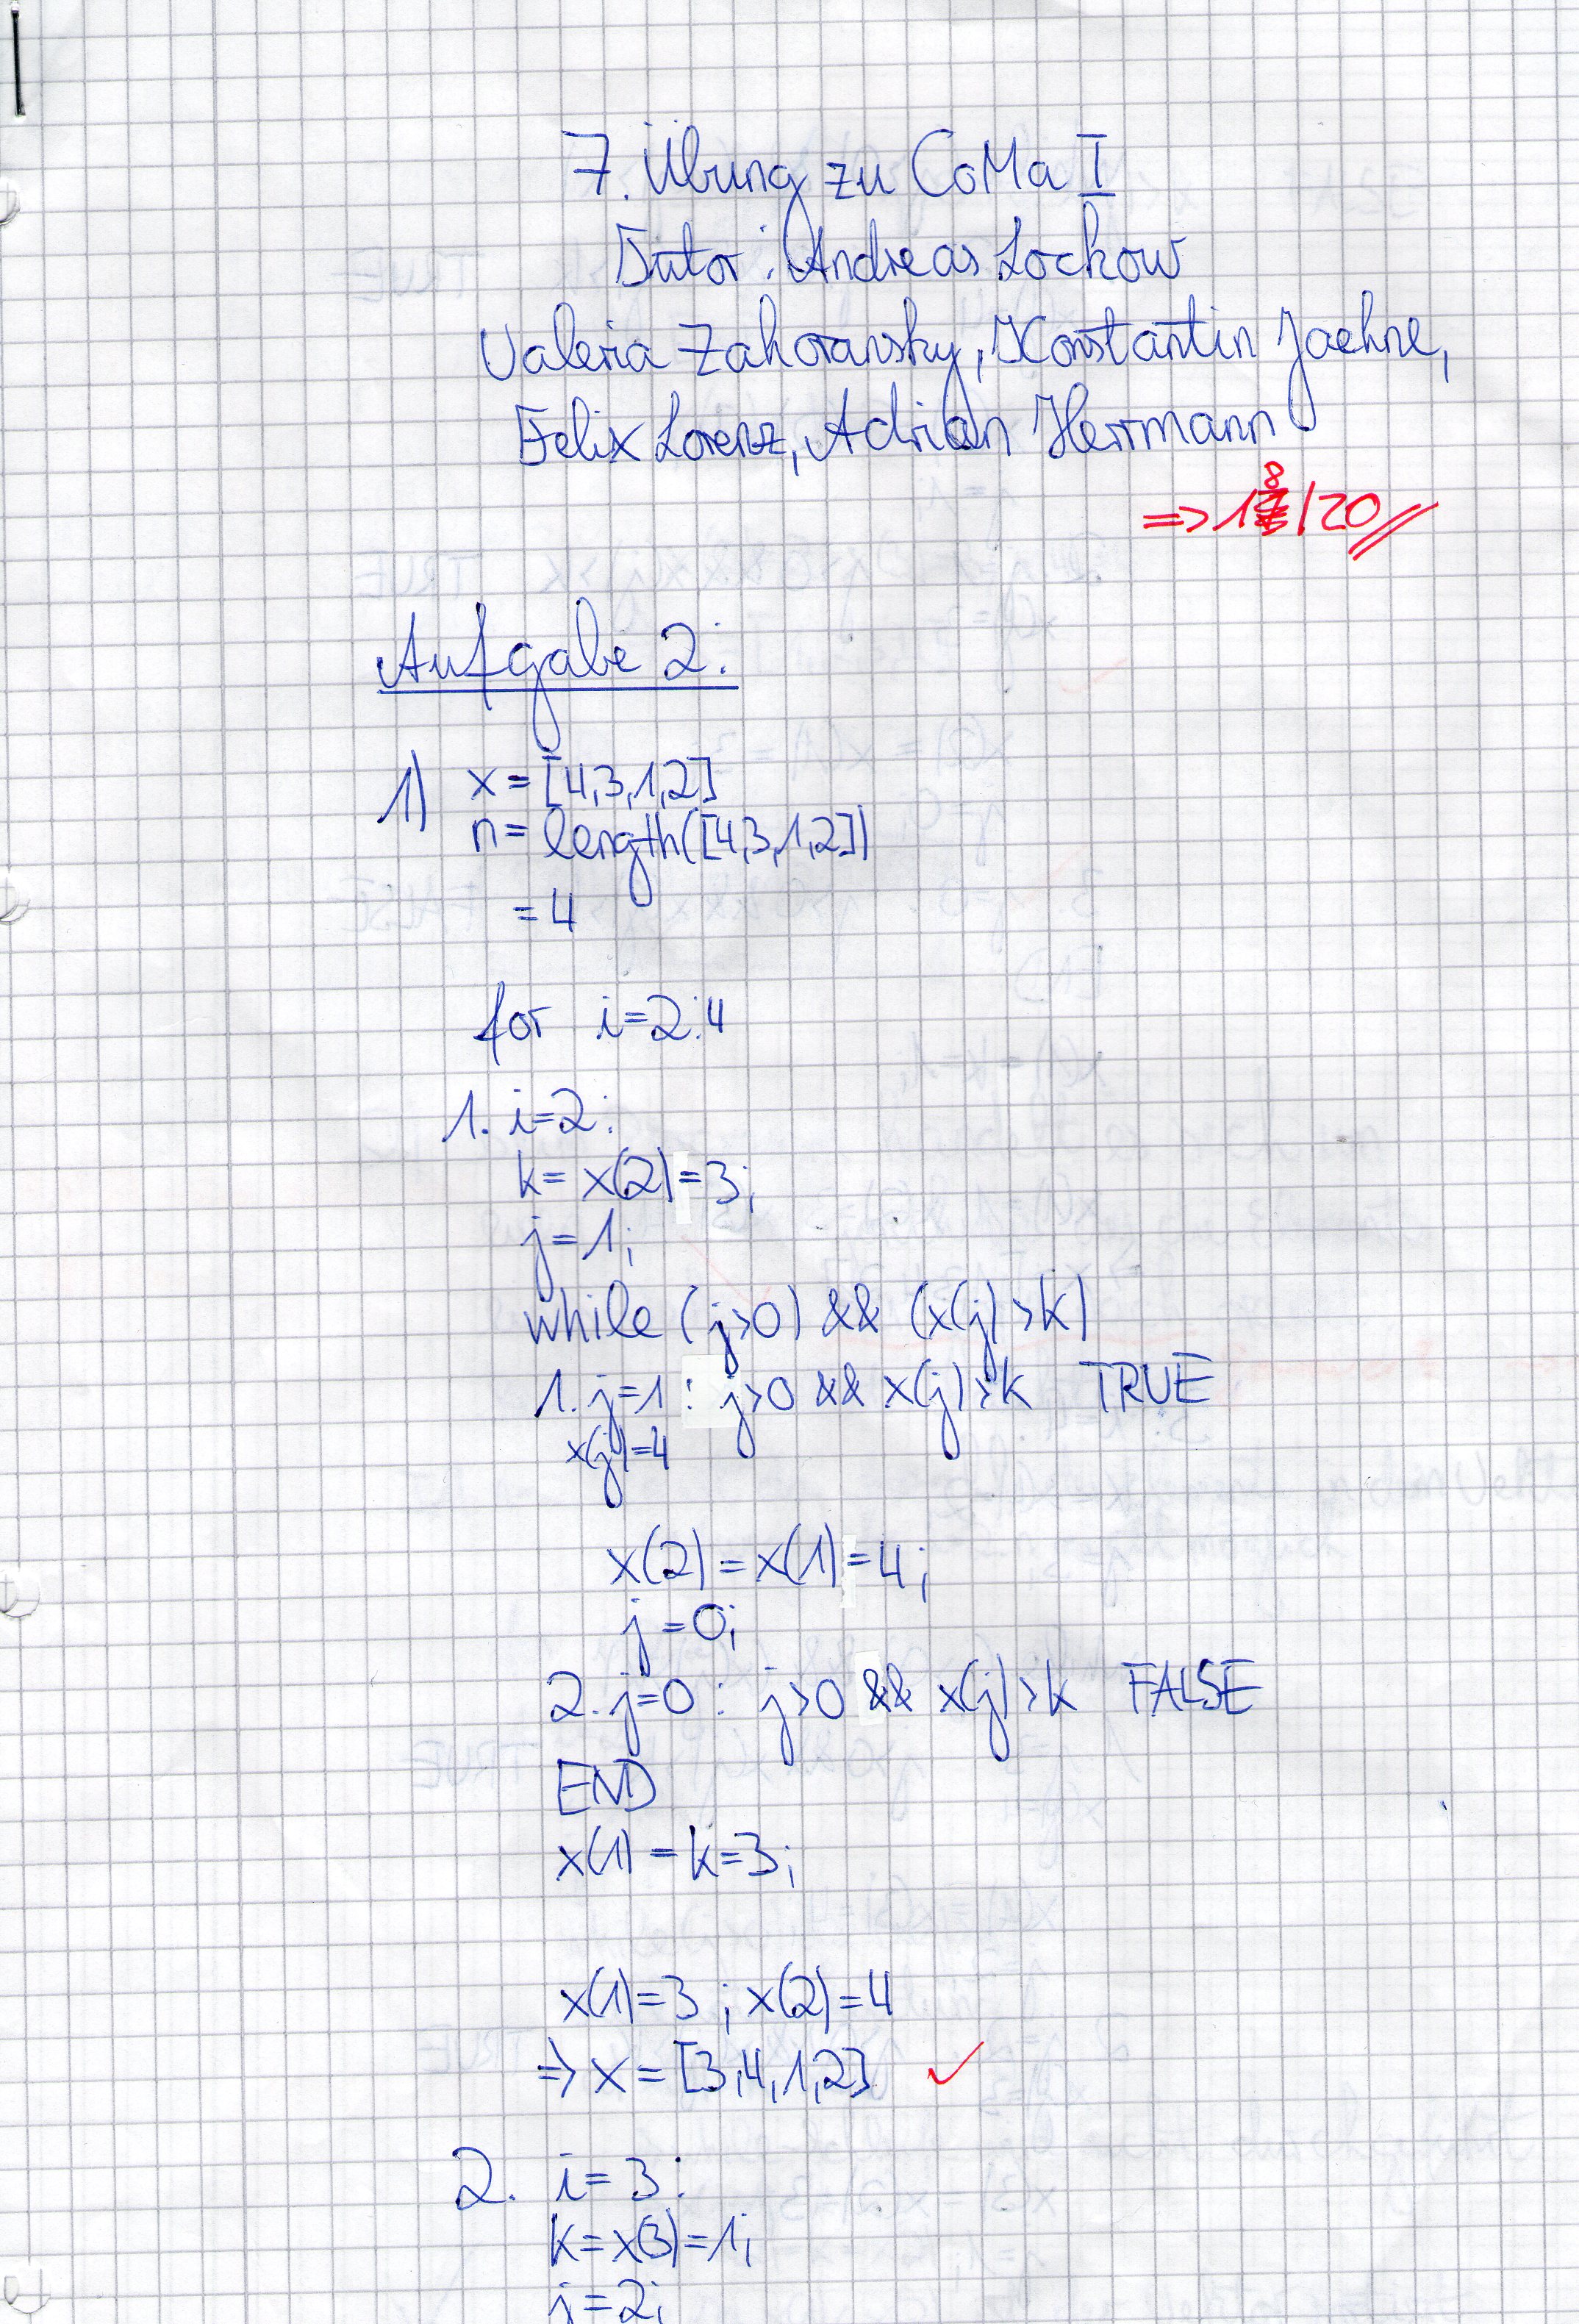 7. Übung zu CoMa I
Tutor: Andreas Lockow
Valeria Zahoransky, Konstantin Jaehne,
Felix Lorenz, Adrian Herrmann
=> 18/20
Aufgabe 2:
1) x = [4,3,1,2]
n = length([4,3,1,2])
= 4
for i=2:4
1. i=2:
k = x(2) = 3;
j = 1;
while (j>0) && (x(j)>k)
1. j=1 : j>0 && x(j)>k TRUE
x(j)=4
x(2) = x(1) = 4;
j = 0;
2. j=0 : j>0 && x(j)>k FALSE
END
x(1) = k = 3;
x(1)=3 ; x(2)=4
=> x = [3,4,1,2] ✓
2. i = 3:
k = x(3) = 1;
j = 2;